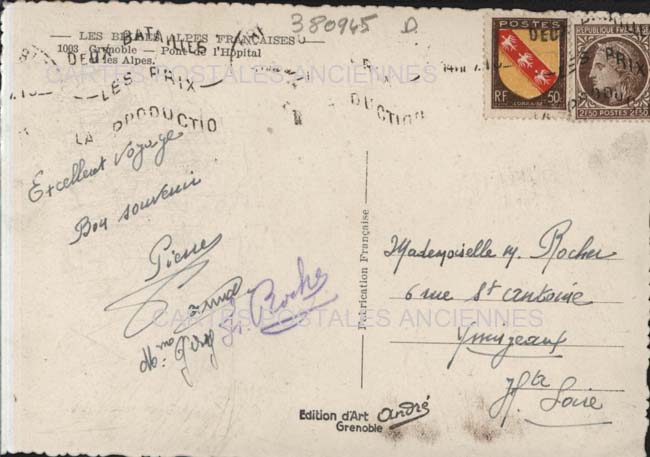 380945 D
LES BELLES ALPES FRANÇAISES
1003 Grenoble — Pont de l'Hôpital
et les Alpes.
BATAILLES
LES PRIX
LA PRODUCTIO
POSTES
RF 50
LORRAINE
REPUBLIQUE FRANÇAISE
2F50 POSTES 2F50
CARTES POSTALES ANCIENNES
Excellent Voyage
Bon souvenir
Pierre
G. Roche
Fabrication Française
Mademoiselle M. Rocher
6 rue St Antoine
Yssingeaux
Hte Loire
CARTES POSTALES ANCIENNES
Edition d'Art André
Grenoble